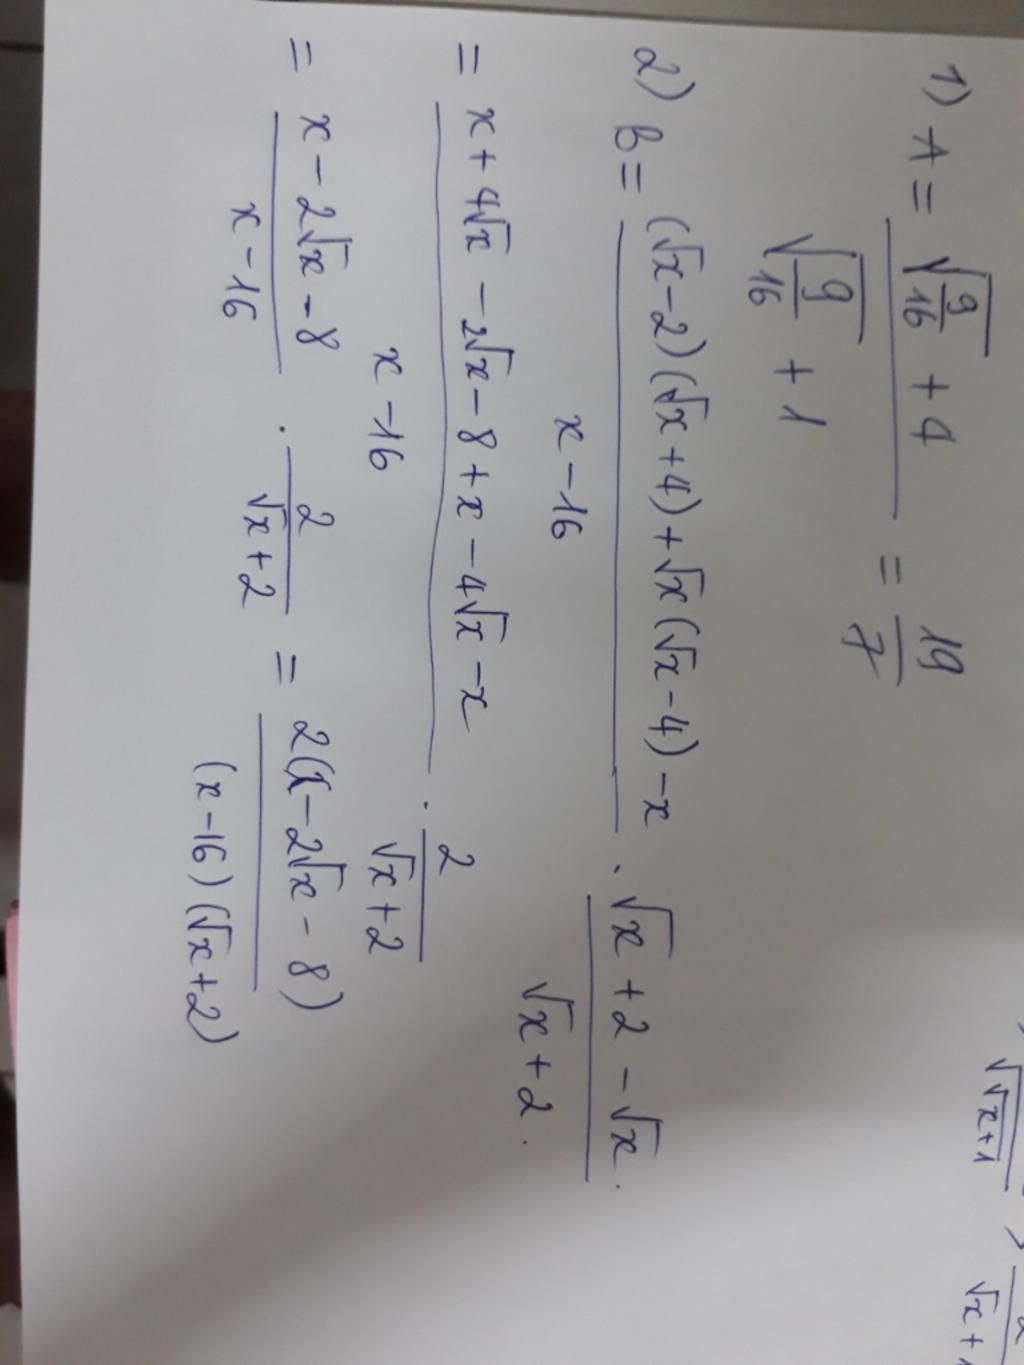 1) A = (√(9/16) + 4)/(√(9/16) + 1) = 19/7
2) B = ((√x - 2)(√x + 4) + √x(√x - 4) - x)/(x - 16) . (√x + 2 - √x)/(√x + 2) .
= (x + 4√x - 2√x - 8 + x - 4√x - x)/(x - 16) . 2/(√x + 2)
= (x - 2√x - 8)/(x - 16) . 2/(√x + 2) = 2(x - 2√x - 8)/((x - 16)(√x + 2))
√(√x+1)
√x +